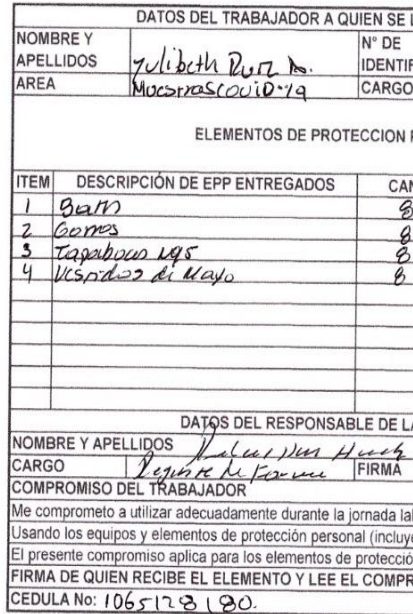 DATOS DEL TRABAJADOR A QUIEN SE
NOMBRE Y APELLIDOS Yulibeth Ruiz N° DE IDENTIF
AREA Muestras COVID-19 CARGO
ELEMENTOS DE PROTECCION
ITEM DESCRIPCIÓN DE EPP ENTREGADOS CAN
1 Batas 8
2 Gorros 8
3 Tapabocas N95 8
4 Vestidos de Mayo 8
DATOS DEL RESPONSABLE DE LA
NOMBRE Y APELLIDOS
CARGO FIRMA
COMPROMISO DEL TRABAJADOR
Me comprometo a utilizar adecuadamente durante la jornada lab
Usando los equipos y elementos de protección personal (incluye
El presente compromiso aplica para los elementos de protecció
FIRMA DE QUIEN RECIBE EL ELEMENTO Y LEE EL COMPR
CEDULA No: 1065128180.